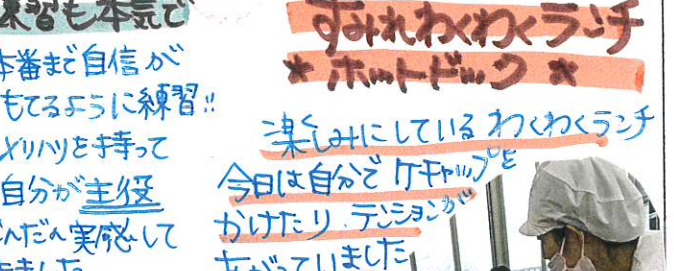 練習も本気で
本番まで自信が
もてるように練習!!
メリハリを持って
自分が主役
だんだん実感して
きました
すみれわくわくランチ
* ホットドック *
楽しみにしているわくわくランチ
今日は自分でケチャップを
かけたり テンションが
あがっていました